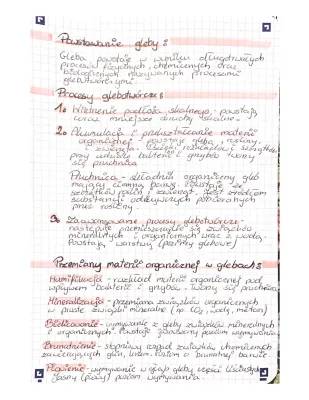 Powstawanie gleby:
Gleba powstaje w wyniku długotrwałych
procesów fizycznych, chemicznych oraz
biologicznych nazywanych procesami
glebotwórczymi.
Procesy glebotwórcze:
1. Wietrzenie podłoża skalnego, powstają
coraz mniejsze okruchy skalne.
2. Akumulacja i przekształcanie materii
organicznej - powstaje gleba, rośliny
i zwierzęta.
przy udziale bakterii i grzybów tworzy
się próchnica
Próchnica - składnik organiczny gleb
mający ciemną barwę, powstaje ze
szczątków roślin i zwierząt. Jest źródłem
substancji odżywczych pobieranych
przez rośliny.
3. Zaawansowane procesy glebotwórcze -
następuje przemieszczanie się związków
mineralnych i organicznych wraz z wodą.
Powstają warstwy (poziomy glebowe)
Przemiany materii organicznej w glebach:
Humifikacja - rozkład materii organicznej pod
wpływem bakterii i grzybów. tworzy się próchnica
Mineralizacja - przemiana związków organicznych
w proste związki mineralne (np CO2, wody, metan)
Bielicowanie - wymywanie z gleby związków mineralnych
i organicznych. Powstaje poziom wymywania
Brunatnienie - stopniowy rozpad związków chemicznych
zawierających glin, i brunatnej barwie.
Płowienie - wymywanie w głąb gleby części
Jasny (płowy) poziom wymywania.